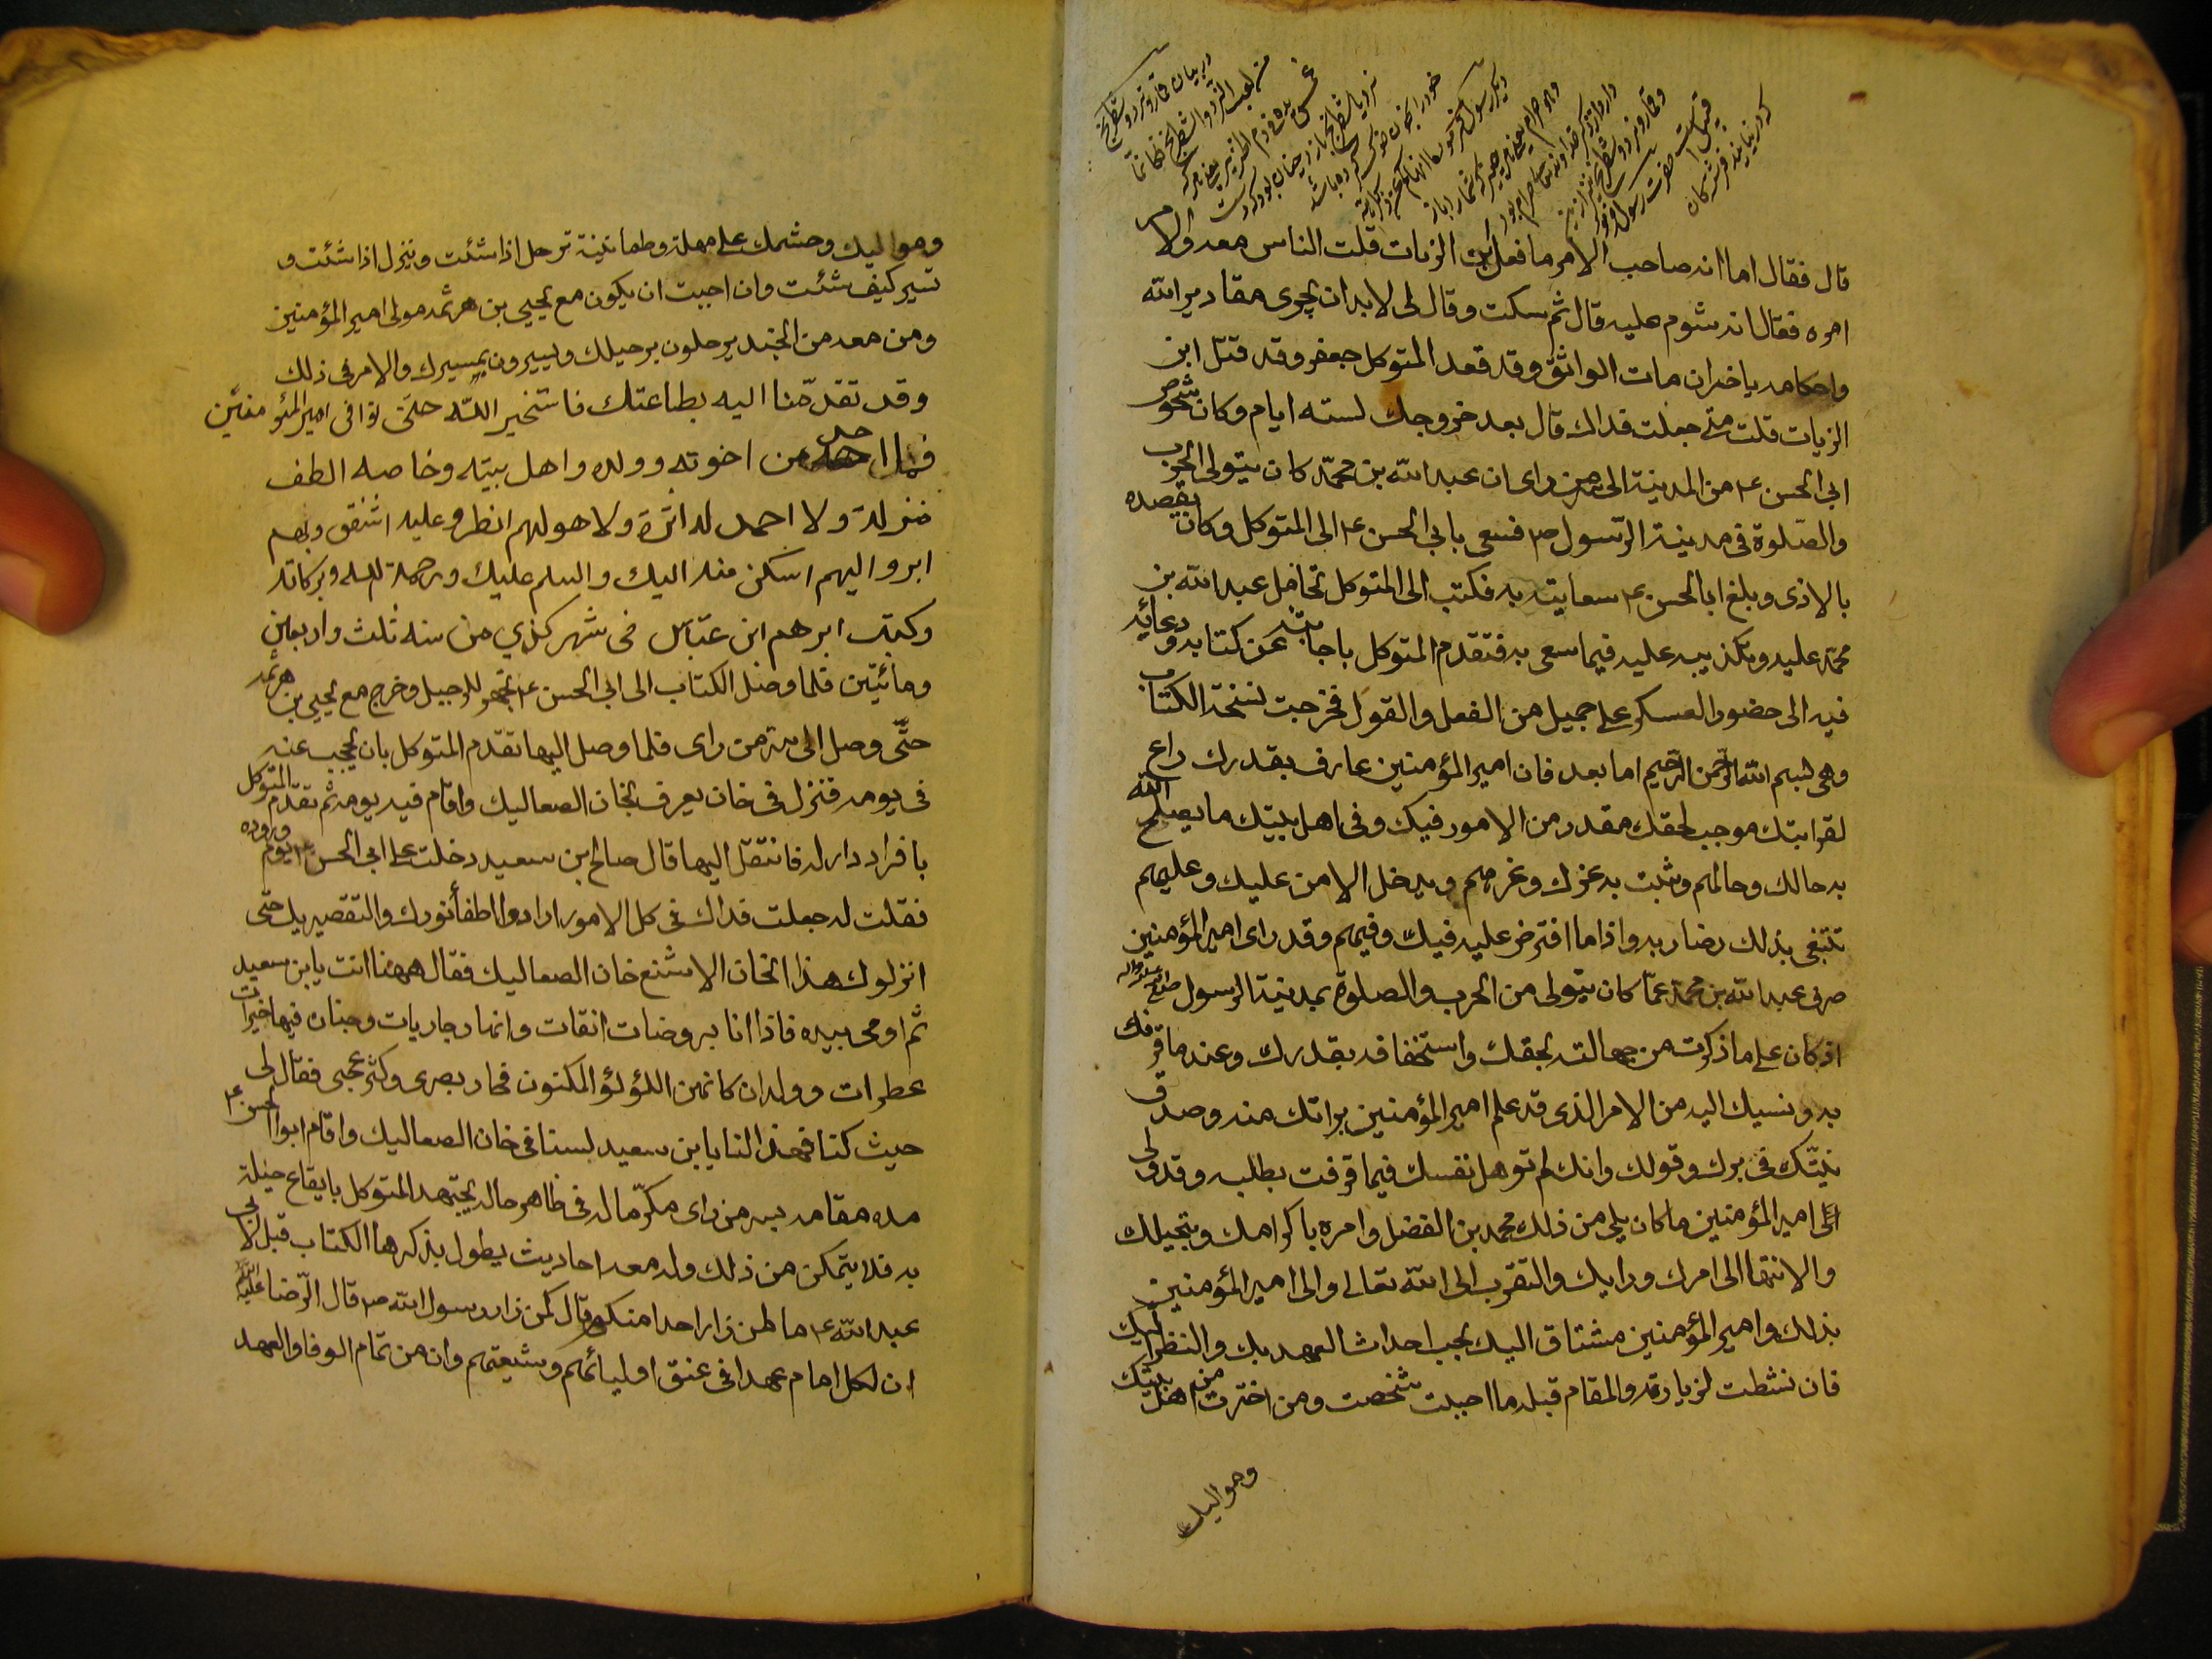 قال فقال اما انه صاحب الامر ما فعل ابن الزيات قلت الناس معه والامر
امره فقال انه شوم عليه قال ثم سكت وقال لى لابد ان يجرى مقادير الله
واحكامه يا خيران مات الواثق وقد قعد المتوكل جعفر وقد قتل ابن
الزيات قلت متى جعلت فداك قال بعد خروجك لسته ايام وكان شخوص
ابى الحسن ع من المدينة الى سر من راى ان عبد الله بن محمّد كان يتولى الحرب
والصّلوة فى مدينة الرّسول ص فسعى بابى الحسن ع الى المتوكل وكان يقصده
بالاذى وبلغ ابا لحسن ع سعايته به فكتب الى المتوكل تحامل عبد الله بن
محمّد عليه وتكذيبه عليه فيما سعى به فتقدم المتوكل باجابته عن كتابه ودعائه
فيه الى حضور العسكر على جميل من الفعل والقول فخرجت نسخة الكتاب
وهى بسم الله الرّحمن الرّحيم اما بعد فان امير المؤمنين عارف بقدرك راع
لقرابتك موجب لحقك مقدر من الامور فيك وفى اهل بيتك ما يصلح الله
به حالك وحالهم ويثبت به عزك وعزهم ويدخل الامن عليك وعليهم
تبتغى بذلك رضا ربه واذا ما افترض عليه فيك وفيهم وقد راى امير المؤمنين
صرف عبد الله بن محمد عمّا كان يتولى من الحرب والصلوة بمدينة الرسول صلى الله عليه واله
اذ كان على ما ذكرت من جهالته بحقك واستخفافه بقدرك وعند ما قرفك
به ونسبك اليه من الامر الذى قد علم امير المؤمنين براتك منه وصدق
نيتّك فى برك وقولك وانك لم توهل نفسك فيما قرفت بطلبه وقد ولى
امير المؤمنين ما كان يلى من ذلك محمد بن الفضل وامره باكرامك وتبجيلك
والانتها الى امرك ورايك والتقرب الى الله تعالى والى امير المؤمنين
بذلك وامير المؤمنين مشتاق اليك يحب احداث العهد بك والنظر اليك
فان نشطت لزيارته والمقام قبله ما احببت شخصت ومن اخترت من اهل بيتك
ومواليك
ومواليك وحشمك على مهلة وطمانينة ترحل اذا شئت وتنزل اذا شئت و
تسير كيف شئت وان احببت ان يكون مع يحيى بن هرثمه مولى امير المؤمنين
ومن معه من الجند يرحلون برحيلك ويسيرون بمسيرك والامر فى ذلك
وقد تقدّمنا اليه بطاعتك فاستخير الله حتى توافى امير المؤمنين
فما احد من اخوته وولده واهل بيته وخاصه الطف
منزلة ولا احمد له اثرة ولا هو لهم انظر وعليه اشفق وبهم
ابر واليهم اسكن منه اليك والسلم عليك ورحمة الله وبركاته
وكتب ابرهيم ابن عبّاس فى شهر كذي من سنه ثلث واربعين
ومائتين فلما وصل الكتاب الى ابى الحسن ع تجهز للرحيل وخرج مع يحيى بن هرثمه
حتّى وصل الى سر من راى فلما وصل اليها تقدم المتوكل بان يحجب عنه
فى يومه فنزل فى خان يعرف بخان الصعاليك واقام فيه يومه ثم تقدم المتوكل
بافراد دار له فانتقل اليها قال صالح بن سعيد دخلت على ابى الحسن ع يوم وروده
فقلت له جعلت فداك فى كل الامور ارادوا اطفأ نورك والتقصير بك حتى
انزلوك هذا الخان الاشنع خان الصعاليك فقال ههنا انت يابن سعيد
ثم اومى بيده فاذا انا بروضات انقات وانهار جاريات وجنان فيها خيرات
عطرات وولدان كانهن اللؤلؤ المكنون فحار بصرى وكثر عجبى فقال لى
حيث كنا فهذا لنا يابن سعيد لسنا فى خان الصعاليك واقام ابو الحسن ع
مده مقامه بسر من راى مكرّما له فى ظاهر حاله يجتهد المتوكل بايقاع حيلة
به فلا يتمكن من ذلك وله معه احاديث يطول بذكرها الكتاب قيل لابى
عبد الله ع ما لمن زار احدا منكم قال كمن زار رسول الله ص قال الرّضا عليه السلام
ان لكل امام عهدا فى عنق اوليائهم وشيعتهم وان من تمام الوفا والعهد